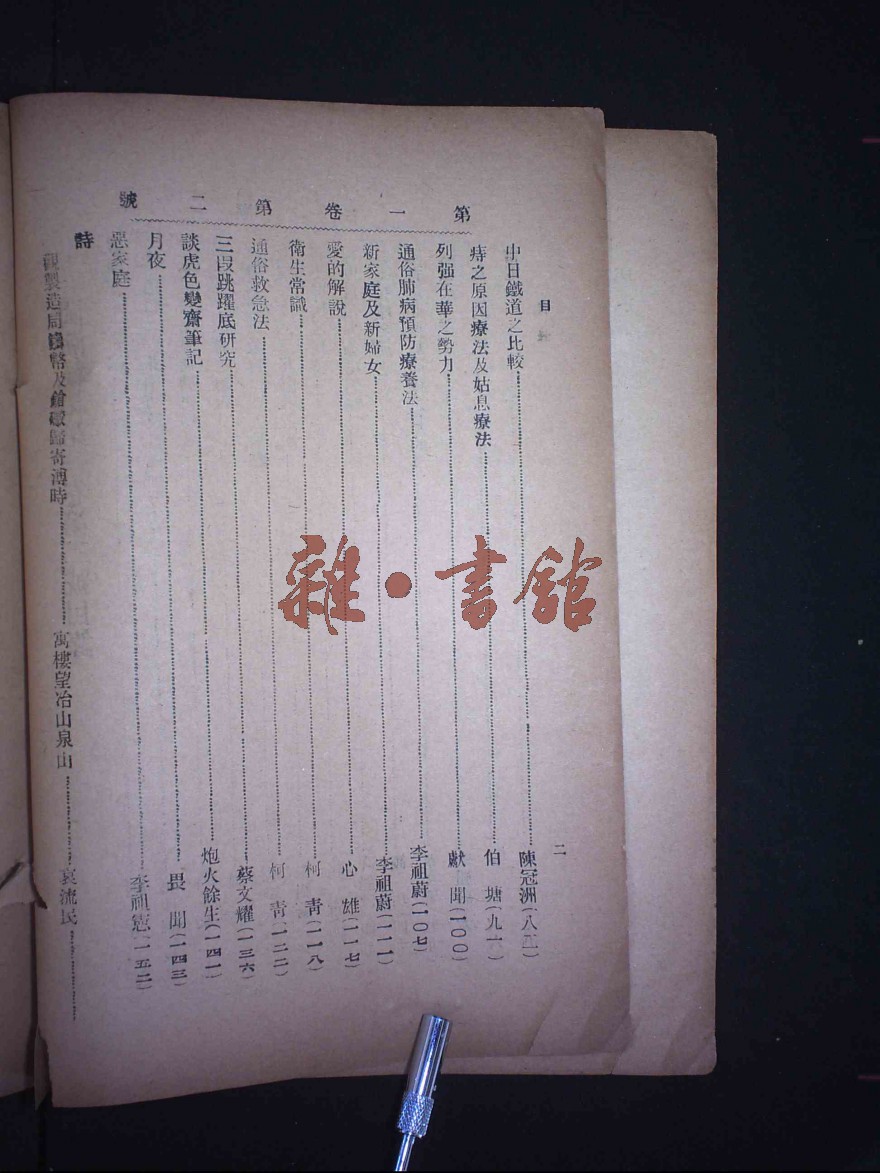 第一卷第二號
目
二
中日鐵道之比較……陳冠洲(八二)
痔之原因療法及姑息療法……伯塘(九一)
列强在華之勢力……獻聞(一〇〇)
通俗肺病預防療養法……李祖蔚(一〇七)
新家庭及新婦女……李祖蔚(一一一)
愛的解說……心雄(一一七)
衛生常識……柯青(一一八)
通俗救急法……柯青(一二二)
三段跳躍底研究……蔡文耀(一三六)
談虎色變齋筆記……炮火餘生(一四一)
月夜……畏聞(一四三)
惡家庭……李祖憲(一五二)
詩
觀製造局鑄幣及鎗礮歸寄溥時……寓樓望冶山泉山……哀流民……
雜·書館